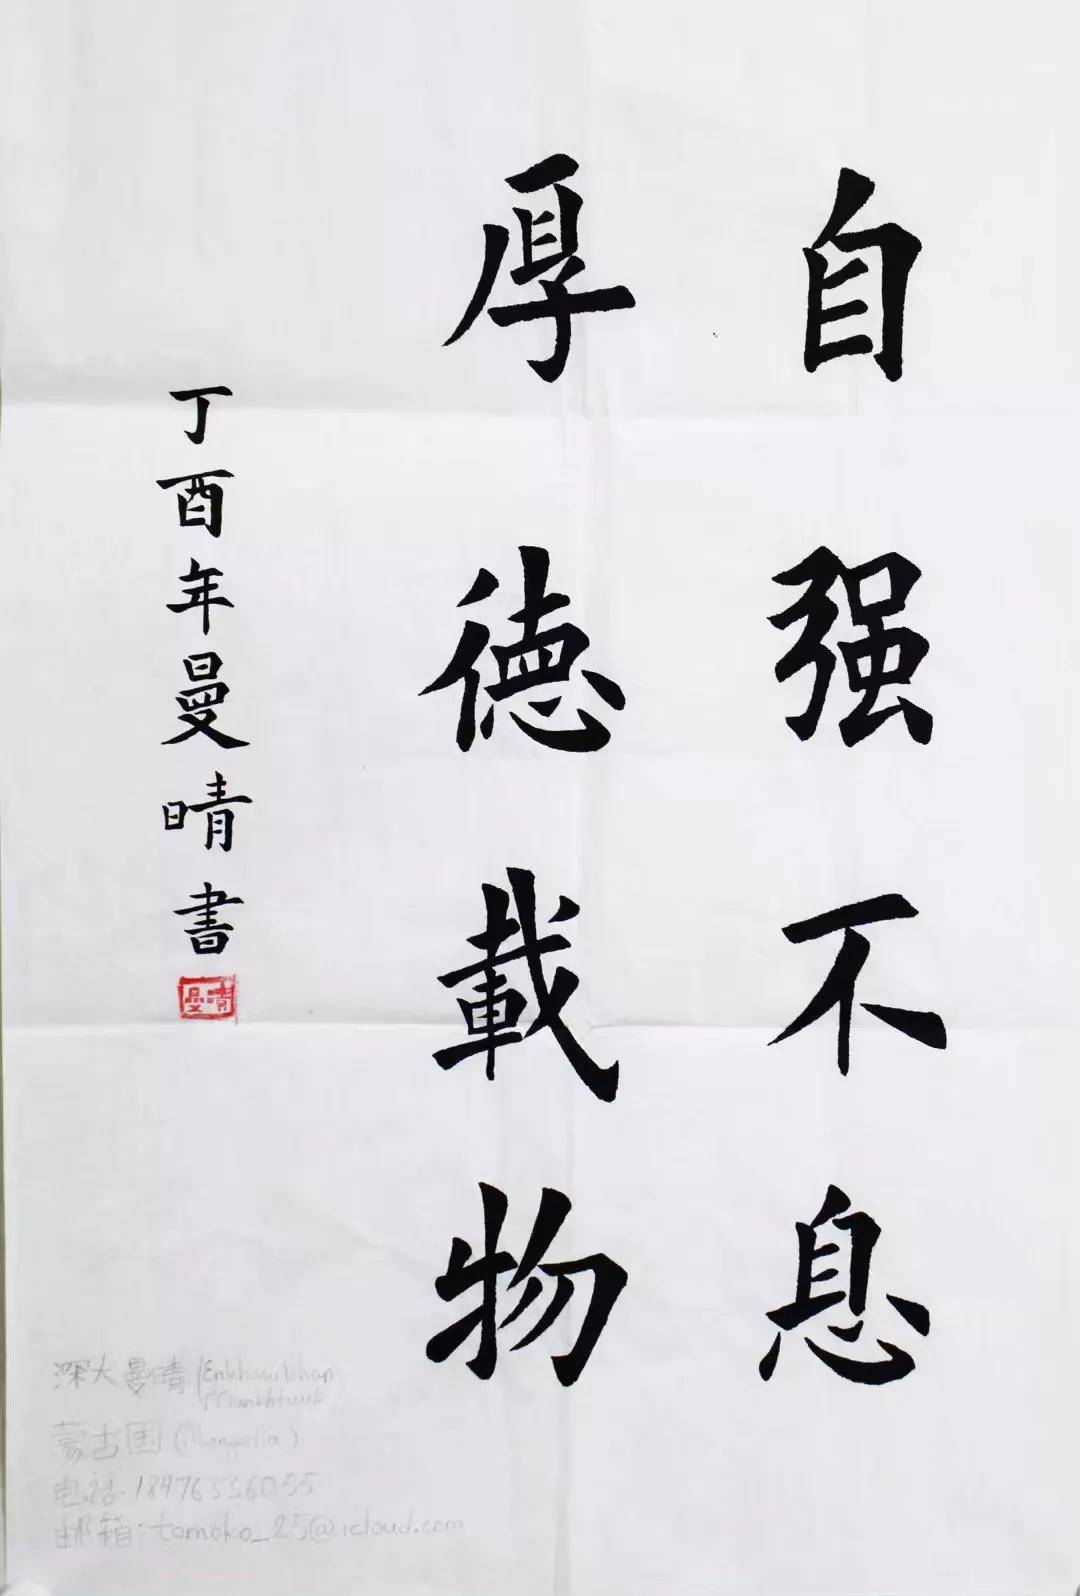 自强不息
厚德載物
丁酉年曼晴書
曼晴
深大曼晴
蒙古国 (Mongolia)
电话: 18476336055
邮箱: tomoko_25@icloud.com